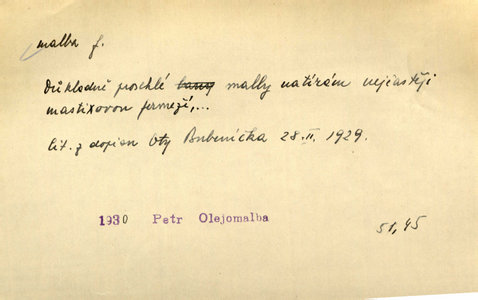 malba f.
Důkladně proschlé barvy malby natírám nejčastěji
mastixovou fermeží,...
Cit. z dopisu Oty Bubeníčka 28.II.1929.
1930 Petr Olejomalba
51,45